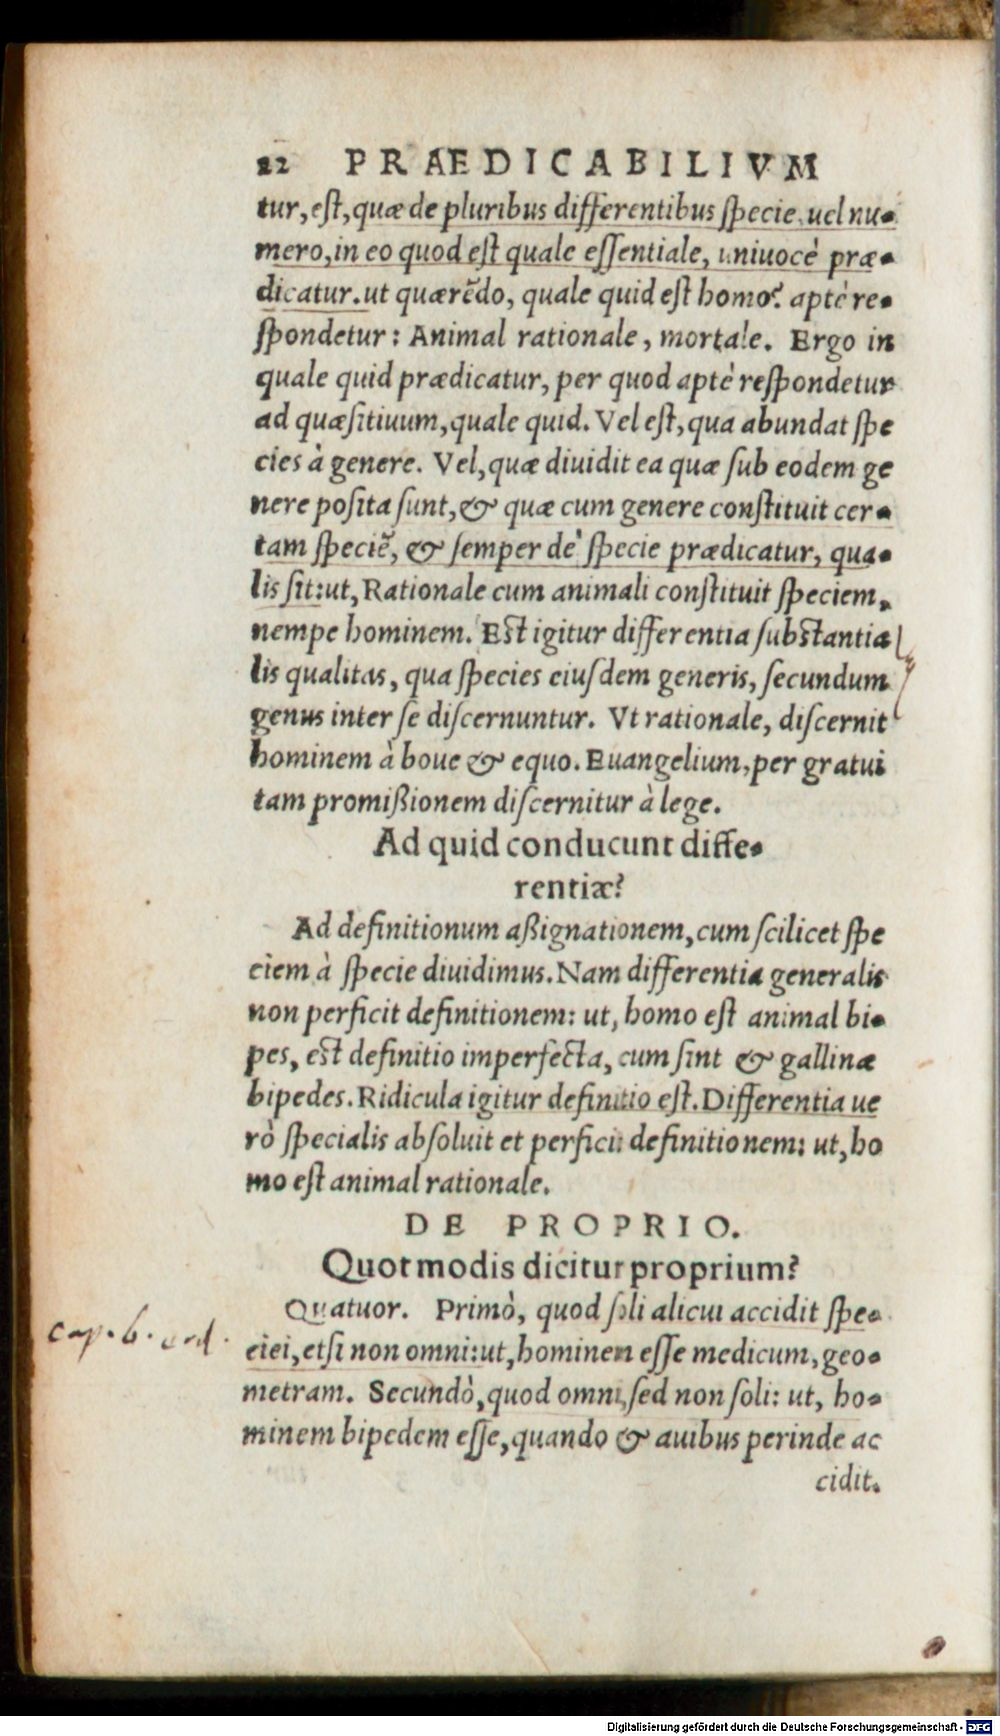 22 PRAEDICABILIVM
tur, eſt, quæ de pluribus differentibus ſpecie, uel nu-
mero, in eo quod eſt quale eſſentiale, uniuocè præ-
dicatur. ut quærẽdo, quale quid eſt homo? aptè re-
ſpondetur: Animal rationale, mortale. Ergo in
quale quid prædicatur, per quod aptè reſpondetur
ad quæſitiuum, quale quid. Vel eſt, qua abundat ſpe
cies à genere. Vel, quæ diuidit ea quæ ſub eodem ge
nere poſita ſunt, & quæ cum genere conſtituit cer-
tam ſpeciẽ, & ſemper de ſpecie prædicatur, qua-
lis ſit: ut, Rationale cum animali conſtituit ſpeciem,
nempe hominem. Eſt igitur differentia ſubſtantia
lis qualitas, qua ſpecies eiuſdem generis, ſecundum
genus inter ſe diſcernuntur. Vt rationale, diſcernit
hominem à boue & equo. Euangelium, per gratui
tam promißionem diſcernitur à lege.
Ad quid conducunt diffe-
rentiæ?
Ad definitionum aßignationem, cum ſcilicet ſpe
ciem à ſpecie diuidimus. Nam differentia generalis
non perficit definitionem: ut, homo eſt animal bi-
pes, eſt definitio imperfecta, cum ſint & gallinæ
bipedes. Ridicula igitur definitio eſt. Differentia ue
rò ſpecialis abſoluit et perficit definitionem: ut, ho
mo eſt animal rationale.
DE PROPRIO.
Quot modis dicitur proprium?
Quatuor. Primò, quod ſoli alicui accidit ſpe-
cap. 6.
ciei, etſi non omni: ut, hominem eſſe medicum, geo-
metram. Secundò, quod omni, ſed non ſoli: ut, ho-
minem bipedem eſſe, quando & auibus perinde ac
cidit.
Digitalisierung gefördert durch die Deutsche Forschungsgemeinschaft - DFG